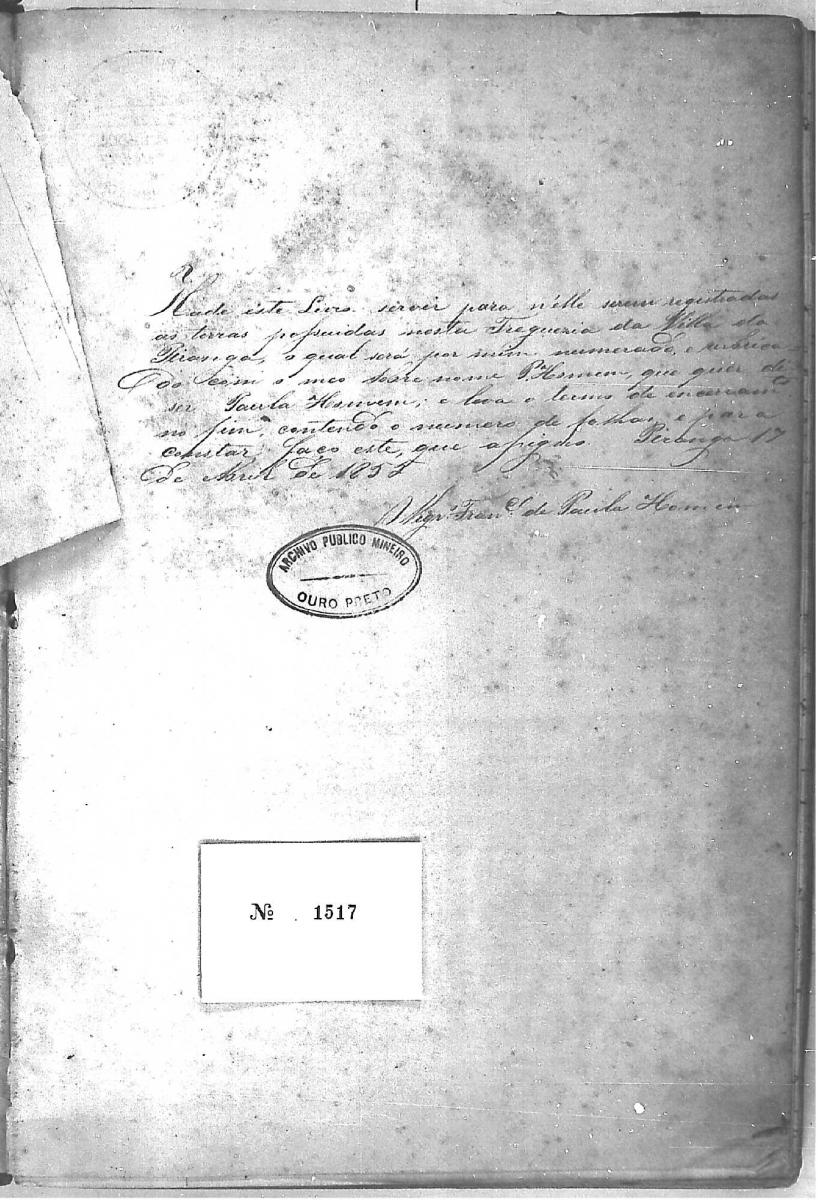 Hade este Livro servir para n'elle serem registradas
as terras possuidas nesta Freguezia da Villa da
Piranga, o qual será por mim numerado, e rubrica-
do com o meo sobre nome P. Homem, que quer di-
ser Paula Homem; e leva o termo de encerramto
no fim, contendo o numero de folhas, e para
constar, faço este, que assigno. Piranga 17
de Abril de 1855
O Vigro Franco de Paula Homem
ARCHIVO PUBLICO MINEIRO
OURO PRETO
No 1517